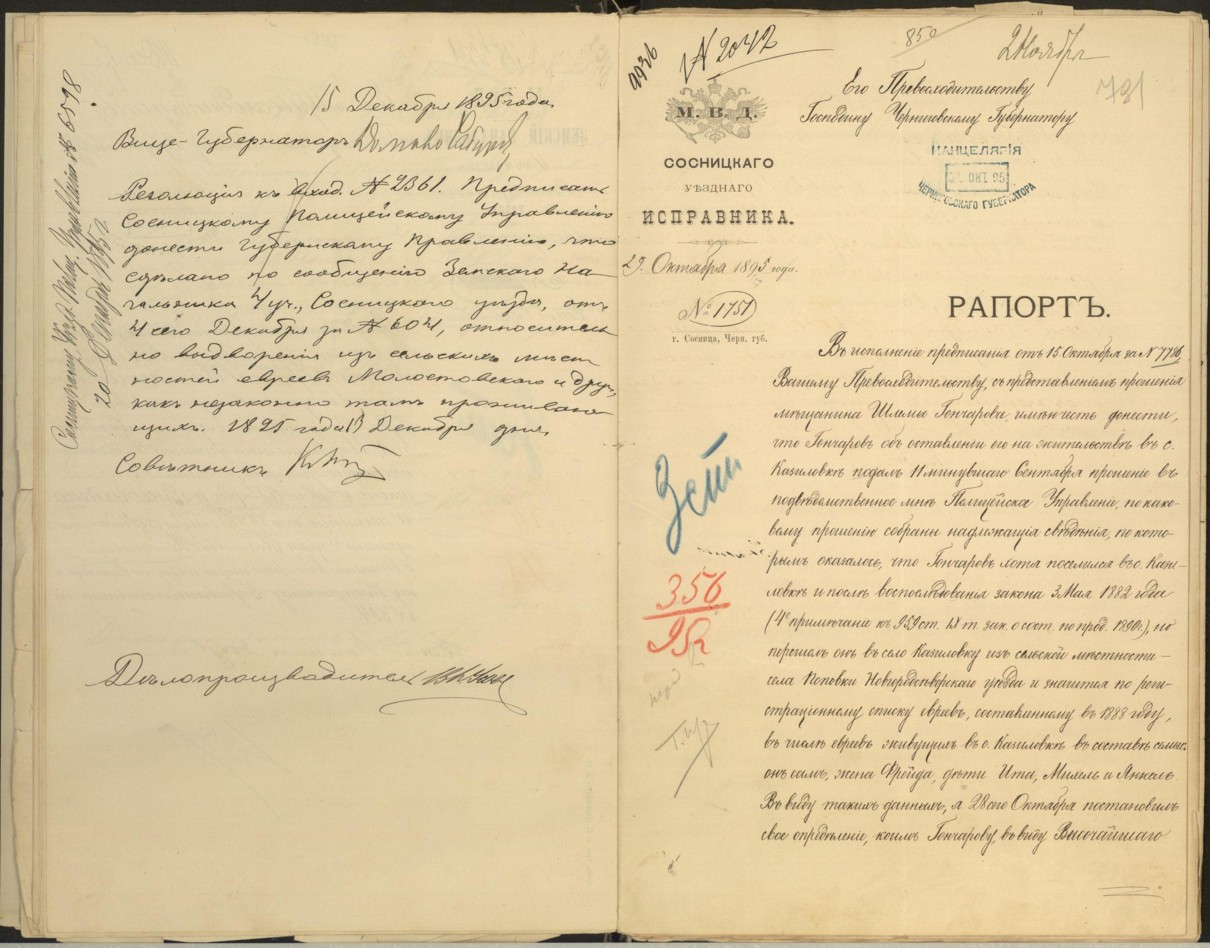 15 Декабря 1895 года.
Вице-Губернаторъ
Резолюція къ вход. № 2361. Предписать
Сосницкому Полицейскому Управленію
донести Губернскому Правленію, что
сдѣлано по сообщенію Земскаго На-
чальника 4 уч., Сосницкаго уѣзда, отъ
4 сего Декабря за № 6041, относитель
но выдворенія изъ сельскихъ мѣст
ностей евреевъ Молостовскаго и друг.,
какъ незаконно тамъ проживаю
щихъ. 1895 года 13 Декабря дня.
Совѣтникъ
Дѣлопроизводитель
Сосницкому Уѣзд. Полиц. Управленію № 6598
20 Декабря 1895 г.
0936
№ 2042
850
2 Ноября
731
М. В. Д.
СОСНИЦКАГО
УѢЗДНАГО
ИСПРАВНИКА.
29 Октября 1895 годи.
№ 1751
г. Сосница, Черн. губ.
Его Превосходительству
Господину Черниговскому Губернатору
КАНЦЕЛЯРІЯ
ОКТ 95
ЧЕРНИГОВСКАГО ГУБЕРНАТОРА
РАПОРТЪ.
Въ исполненіе предписанія отъ 15 Октября за № 7786
Вашему Превосходительству, съ представленіемъ прошенія
мѣщанина Шлемы Гончарова, имѣю честь донести,
что Гончаровъ объ оставленіи его на жительствѣ въ с.
Казиловкѣ подалъ 11 минувшаго Сентября прошеніе въ
подвѣдомственное мнѣ Полицейское Управленіе, по како-
вому прошенію собраны надлежащія свѣдѣнія, по кото-
рымъ оказалось, что Гончаровъ хотя поселился въ с. Кази-
ловкѣ и послѣ воспослѣдованія закона 3 Мая 1882 года
(4е примѣчаніе къ 959 ст. IX т. зак. о сост. по прод. 1890 г.), но
перешелъ онъ въ село Казиловку изъ сельской мѣстности –
села Поповки Новгородсѣверскаго уѣзда и значится по реги-
страціонному списку евреевъ, составленному въ 1888 году,
въ числѣ евреевъ живущихъ въ с. Казиловкѣ въ составѣ семьи:
онъ самъ, жена Фрейда, дѣти Ита, Михель и Янкель.
Въ виду такихъ данныхъ, я 28 сего Октября постановилъ
свое опредѣленіе, коимъ Гончарову, въ виду Высочайшаго
3 ст
356
95 г.